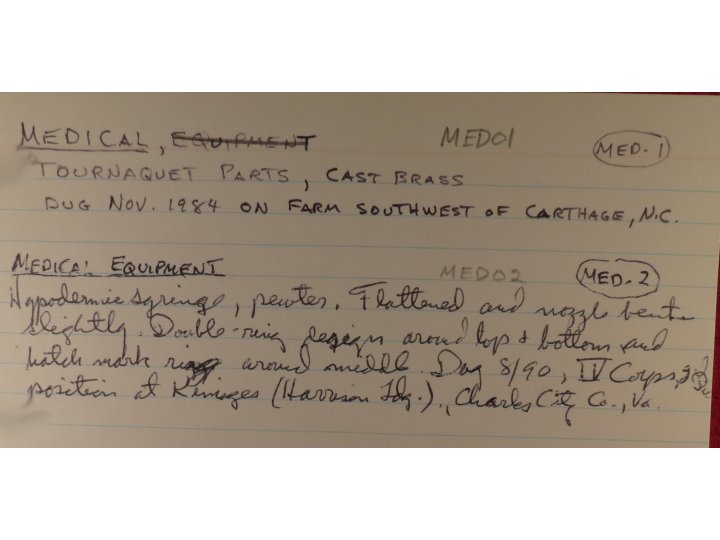 MEDICAL, EQUIPMENT MED01 MED-1
TOURNAQUET PARTS, CAST BRASS
DUG NOV. 1984 ON FARM SOUTHWEST OF CARTHAGE, N.C.
MEDICAL EQUIPMENT MED02 MED-2
Hypodermic syringe, pewter. Flattened and nozzle bent
slightly. Double-ring design around top & bottom and
hatch mark ring around middle. Dug 8/90, IV Corps,
position at Kimages (Harrison Ldg.)., Charles City Co., Va.